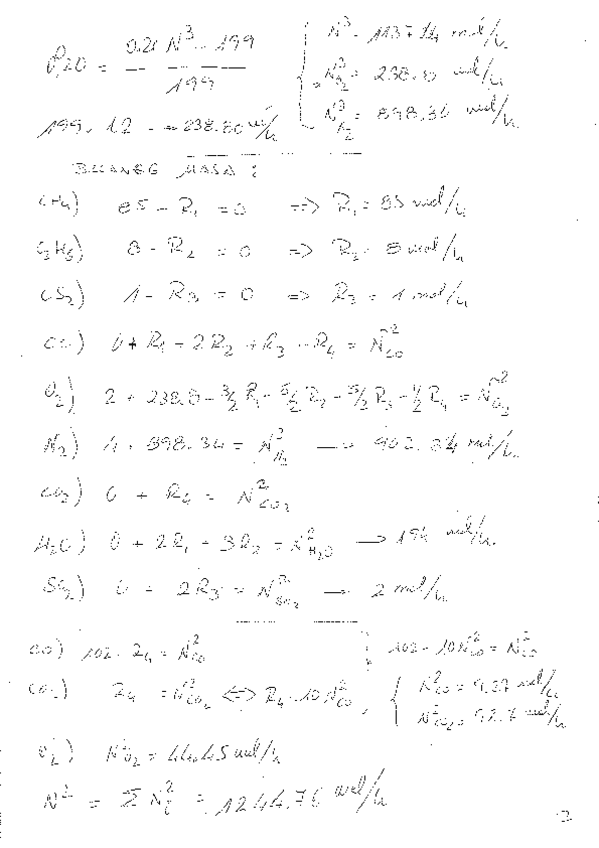 0,20 = (0.21 N³ - 199) / 199
{ N³ = 1137.14 mol/h
N³O₂ = 238.8 mol/h
N³N₂ = 898.34 mol/h
199 · 1.2 = 238.80 mol/h
BALANES MASA :
CH₄) 85 - R₁ = 0 => R₁ = 85 mol/h
C₂H₆) 8 - R₂ = 0 => R₂ = 8 mol/h
CS₂) 1 - R₃ = 0 => R₃ = 1 mol/h
CO) 0 + R₁ + 2R₂ + R₃ - R₄ = N²CO
O₂) 2 + 238.8 - 3/2 R₁ - 5/2 R₂ - 5/2 R₃ - 1/2 R₄ = N²O₂
N₂) 4 + 898.34 = N²N₂ → 902.34 mol/h
CO₂) 0 + R₄ = N²CO₂
H₂O) 0 + 2R₁ + 3R₂ = N²H₂O → 194 mol/h
SO₂) 0 + 2R₃ = N²SO₂ → 2 mol/h
CO) 102 - R₄ = N²CO } 102 - 10N²CO = N²CO
CO₂) R₄ = N²CO₂ <=> R₄ = 10N²CO , { N²CO = 9.27 mol/h
N²CO₂ = 92.7 mol/h
O₂) N²O₂ = 44.45 mol/h
N² = Σ N²i = 1244.76 mol/h